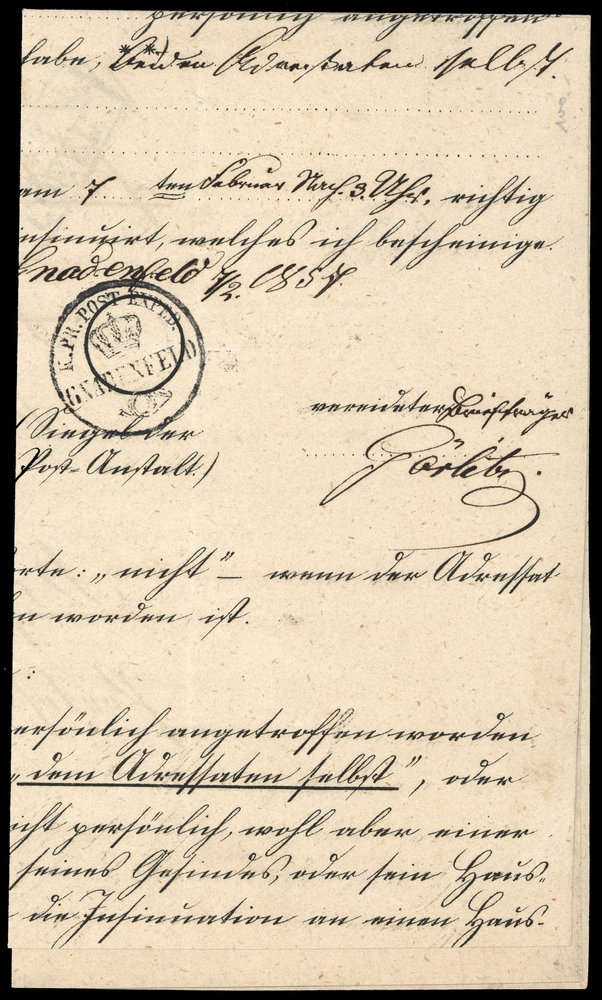 persönlich angetroffen
habe, **) Adressaten selbst.
am 7 ten Februar Nach. 3. Uhr, richtig
insinuirt, welches ich bescheinige.
Gnadenfeld 7/2. 1857.
K. PR. POST EXPED.
GNADENFELD
vereideter Briefträger
(Siegel der
Post-Anstalt.)
orte: „nicht" – wenn der Adressat
n worden ist.
:
ersönlich angetroffen worden
„dem Adressaten selbst", oder
icht persönlich, wohl aber einer
seines Gesindes, oder sein Haus-
die Insinuation an einen Haus-